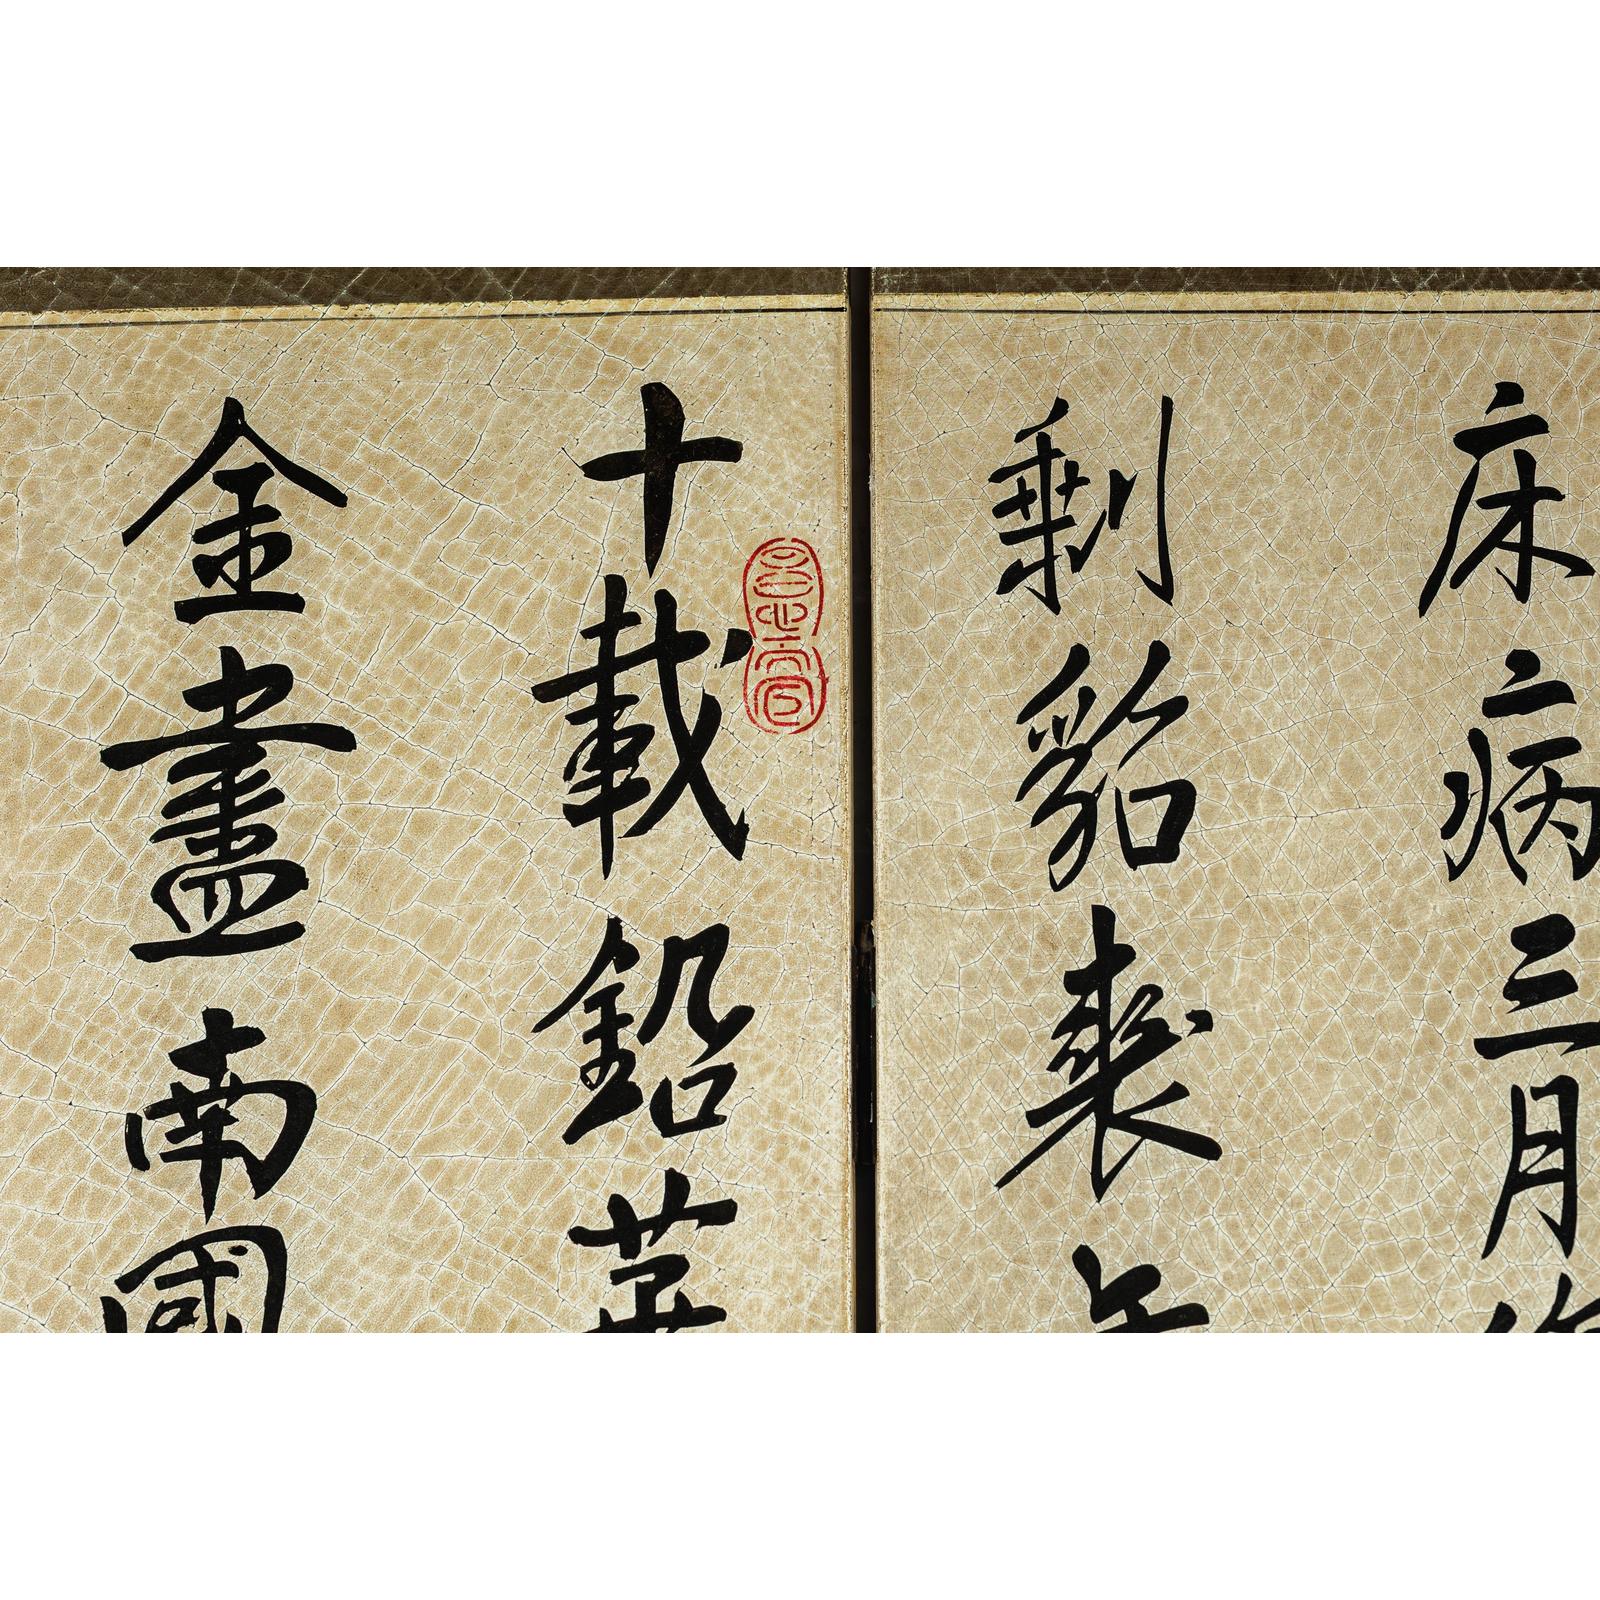 床病三月
剩貂裘
十載鉛華
金盡南國